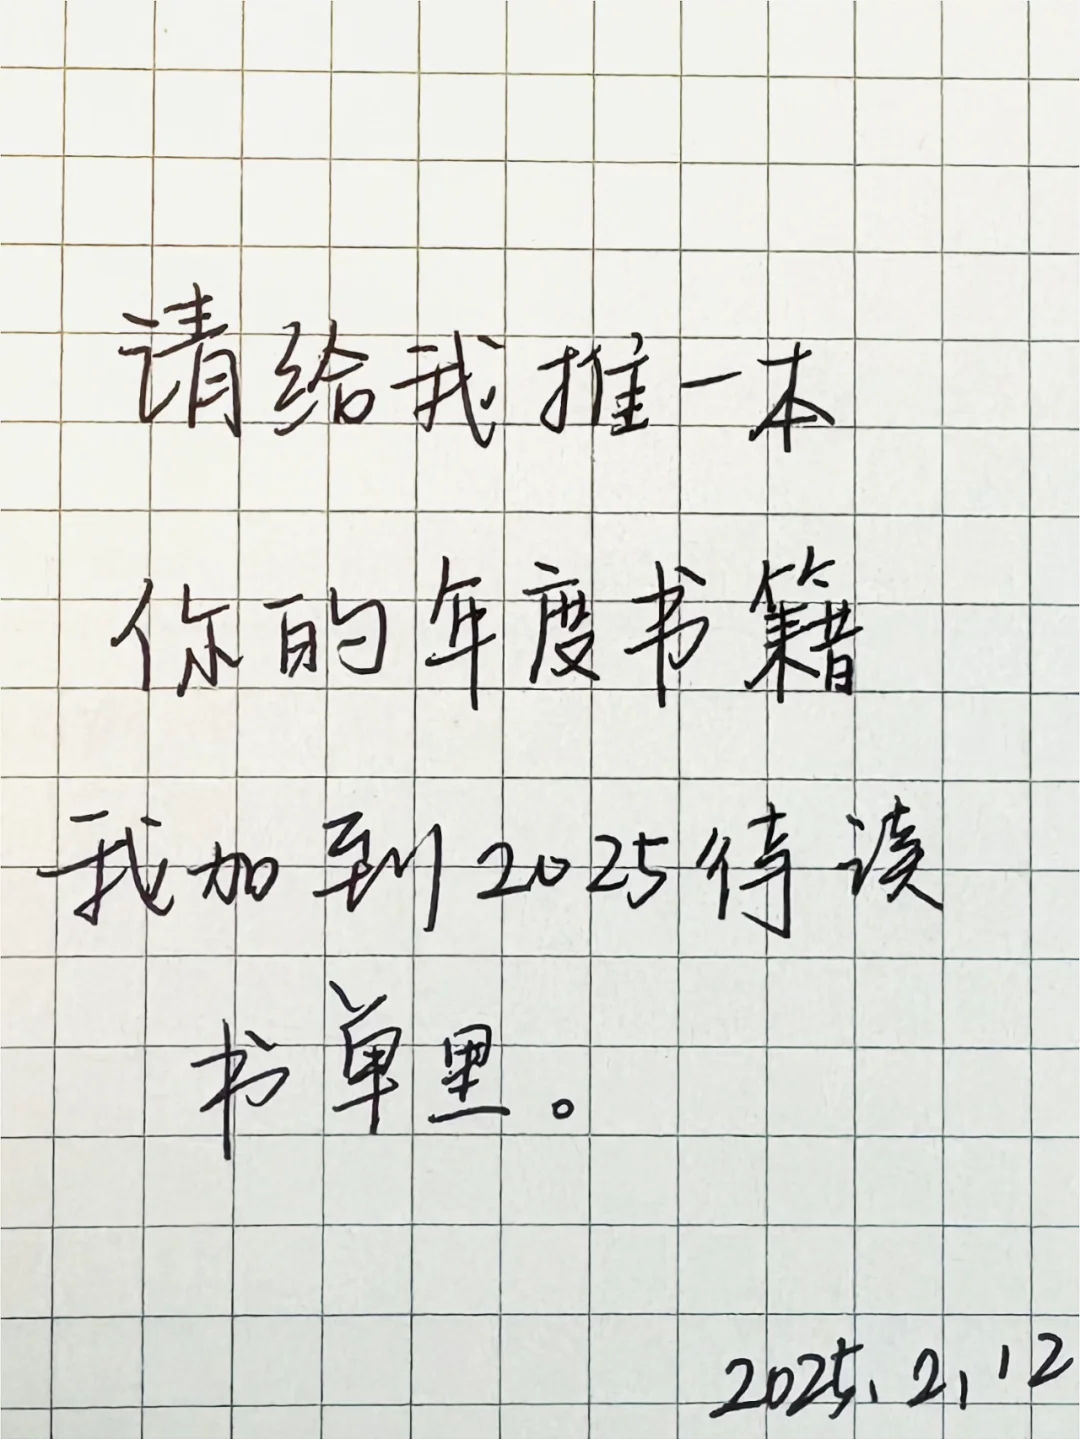 请给我推一本
你的年度书籍
我加到2025待读
书单里。
2025.2.12